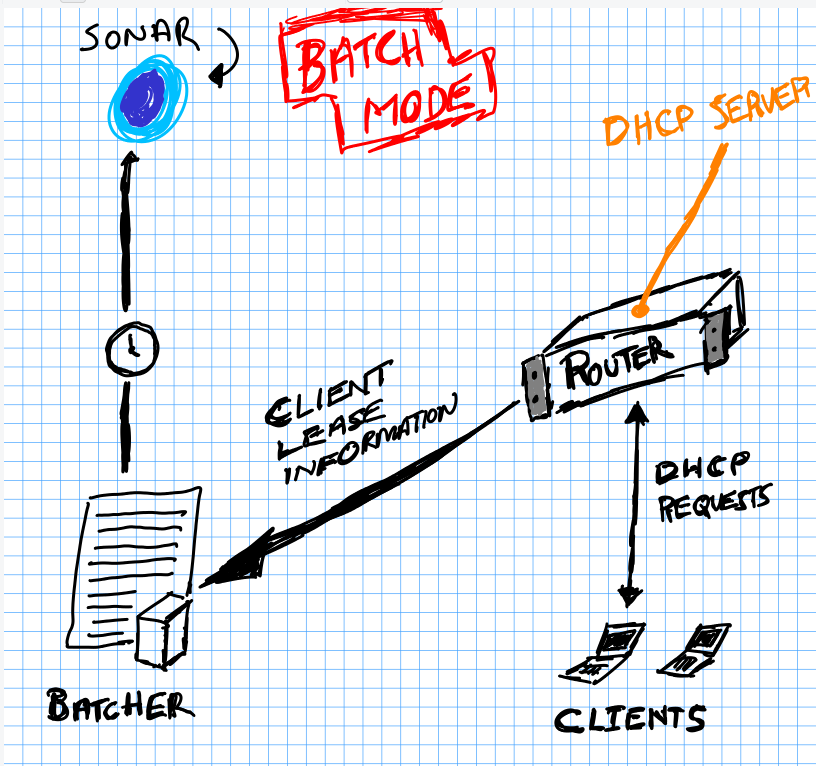 SONAR
BATCH
MODE
DHCP SERVER
ROUTER
CLIENT
LEASE
INFORMATION
DHCP
REQUESTS
BATCHER
CLIENTS